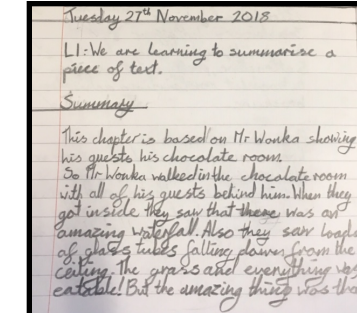 Tuesday 27th November 2018
LI: We are learning to summarise a
piece of text.
Summary
This chapter is based on Mr Wonka showing
his guests his chocolate room.
So Mr Wonka walked in the chocolate room
with all of his guests behind him. When they
got inside they saw that there was an
amazing waterfall. Also they saw loads
of glass tubes falling down from the
ceiling. The grass and everything was
eatable! But the amazing thing was tha